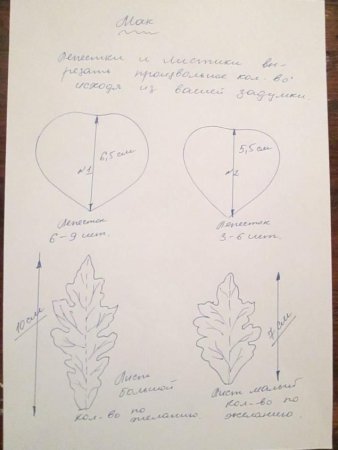 Мак
Лепестки и листики вы-
резать произвольное кол-во
исходя из вашей задумки.
6,5 см
№1
Лепесток
6-9 шт.
5,5 см
№2
Лепесток
3-6 шт.
10 см
Лист
большой
кол-во по
желанию.
7 см
Лист малый
кол-во по
желанию.